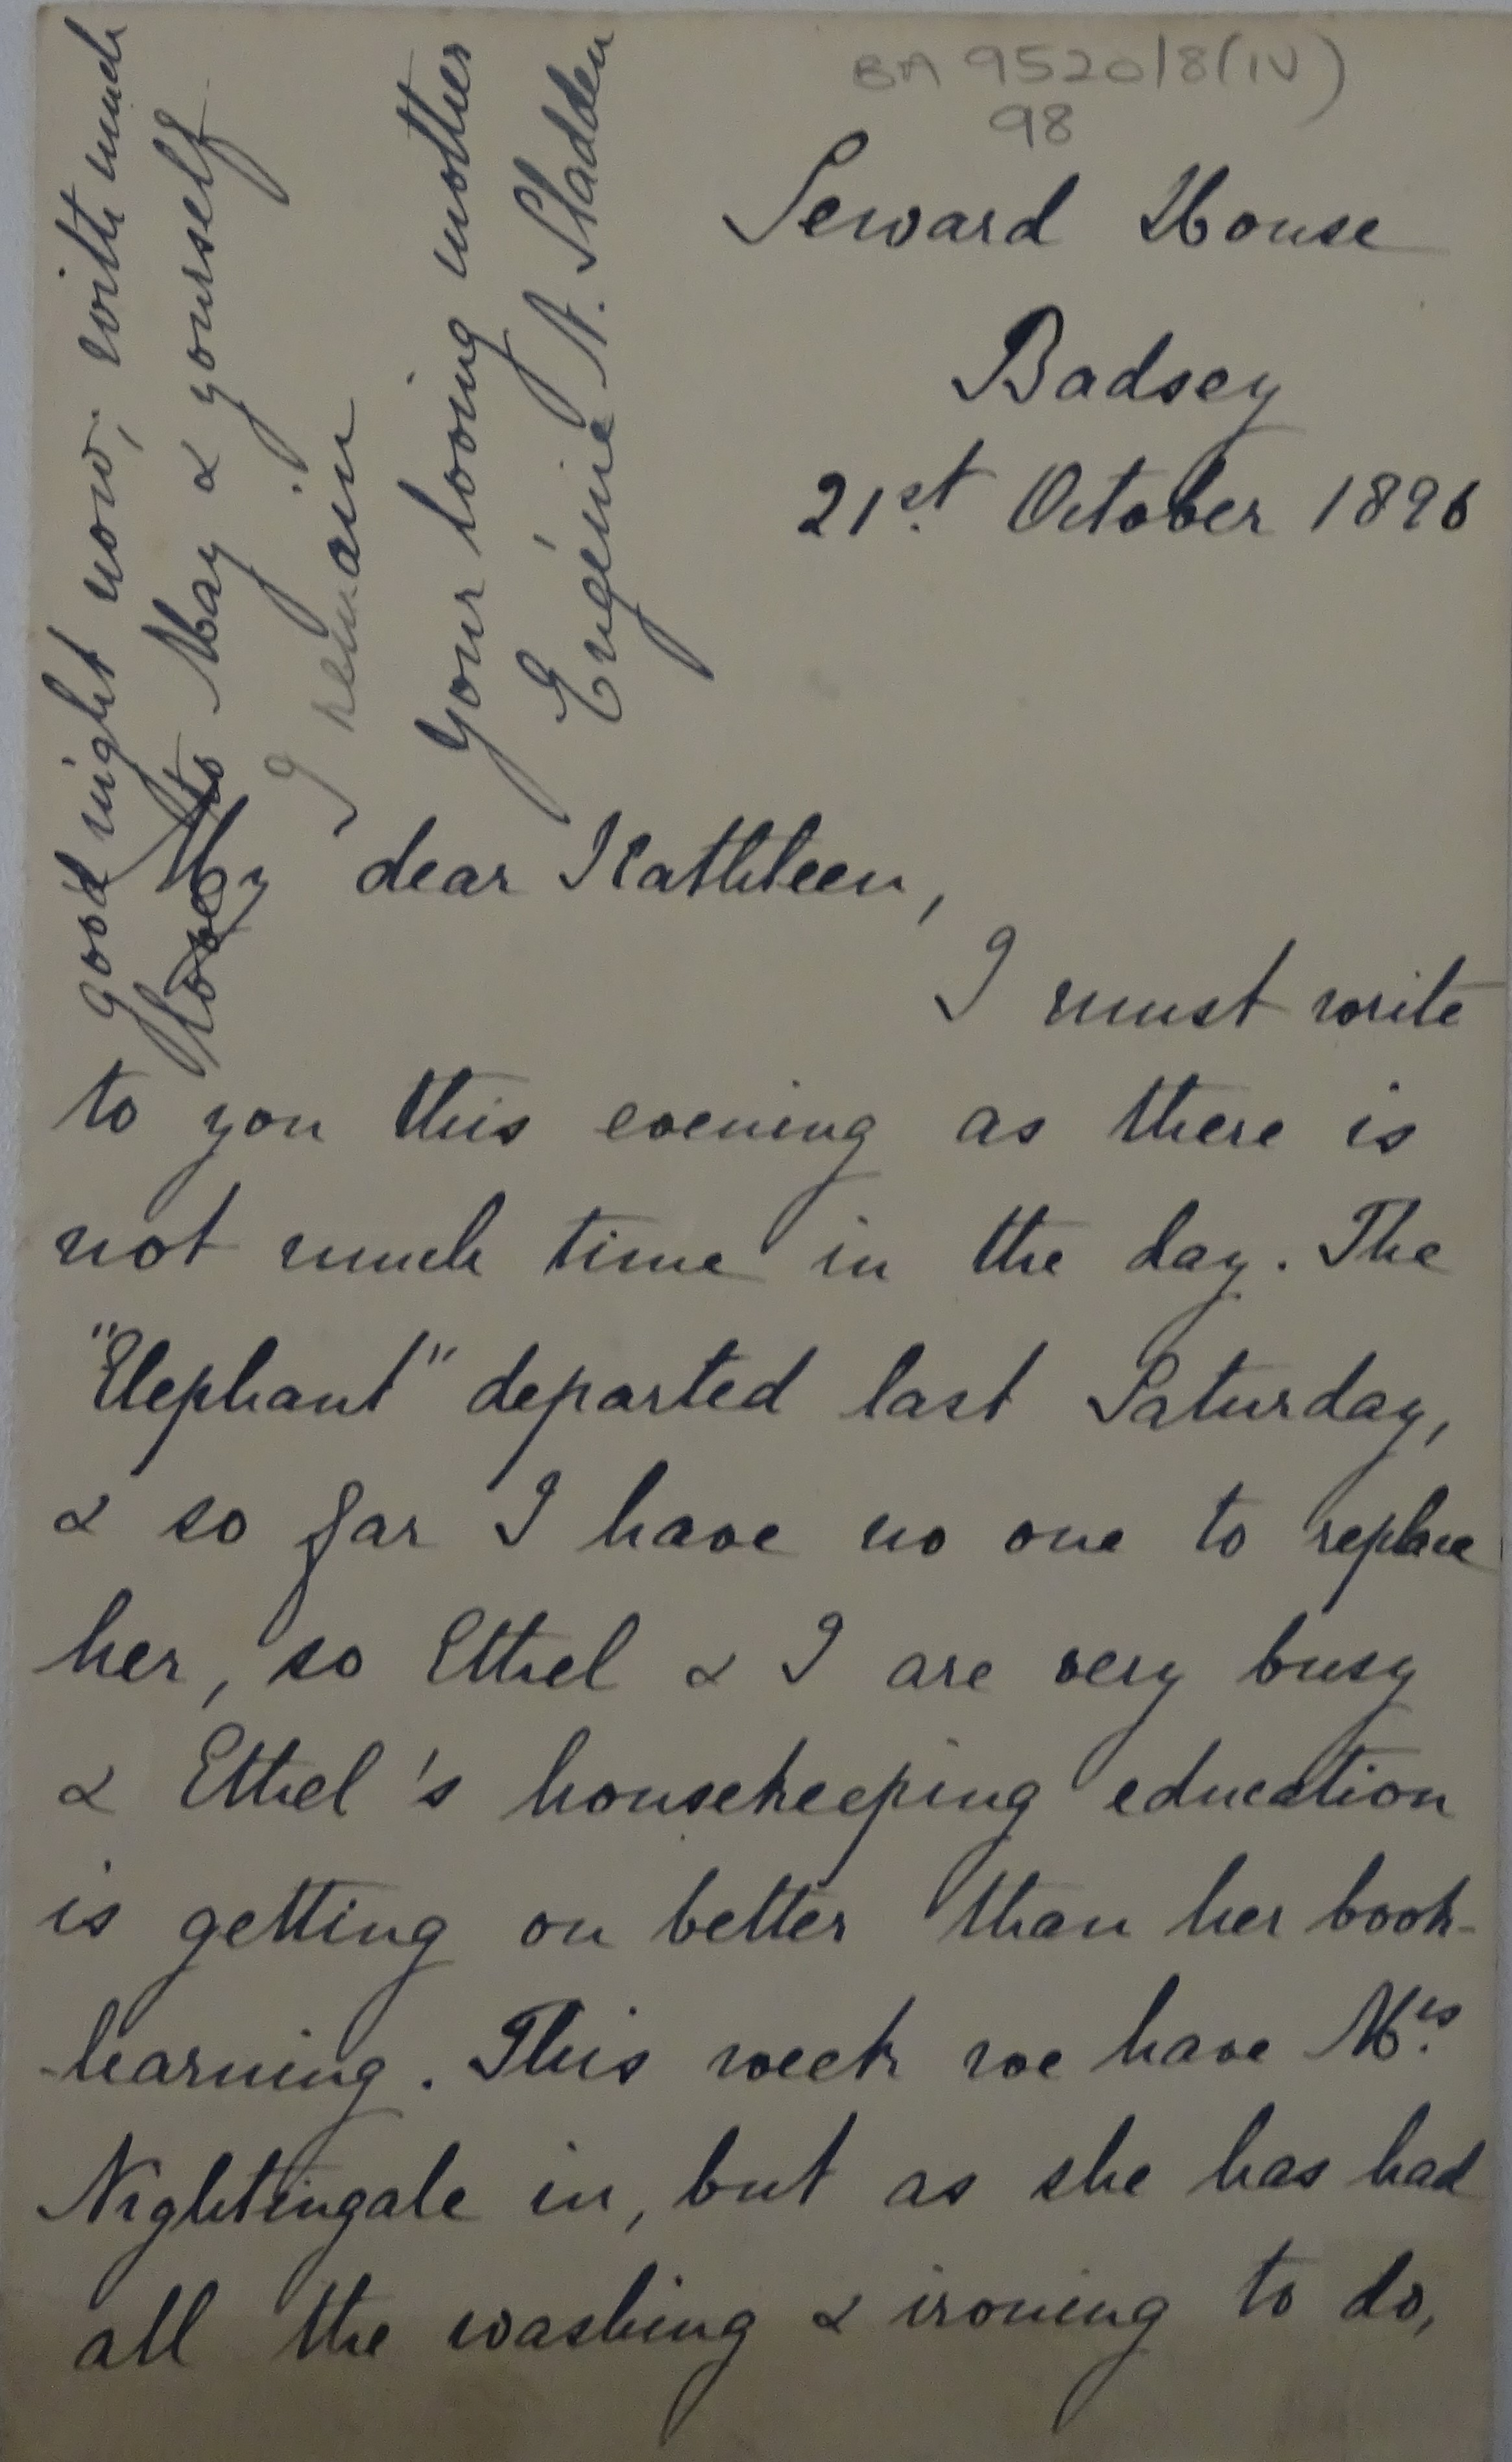 BA 9520/8(IV)
98
Seward House
Badsey
21st. October 1896
My dear Kathleen,
I must write
to you this evening as there is
not much time in the day. The
"Elephant" departed last Saturday,
& so far I have no one to replace
her, so Ethel & I are very busy
& Ethel's housekeeping education
is getting on better than her book-
-learning. This week we have Mrs.
Nightingale in, but as she has had
all the washing & ironing to do,
good night now, with much
love to May & yourself
I remain
Your loving mother
Eugénie N. Sladden